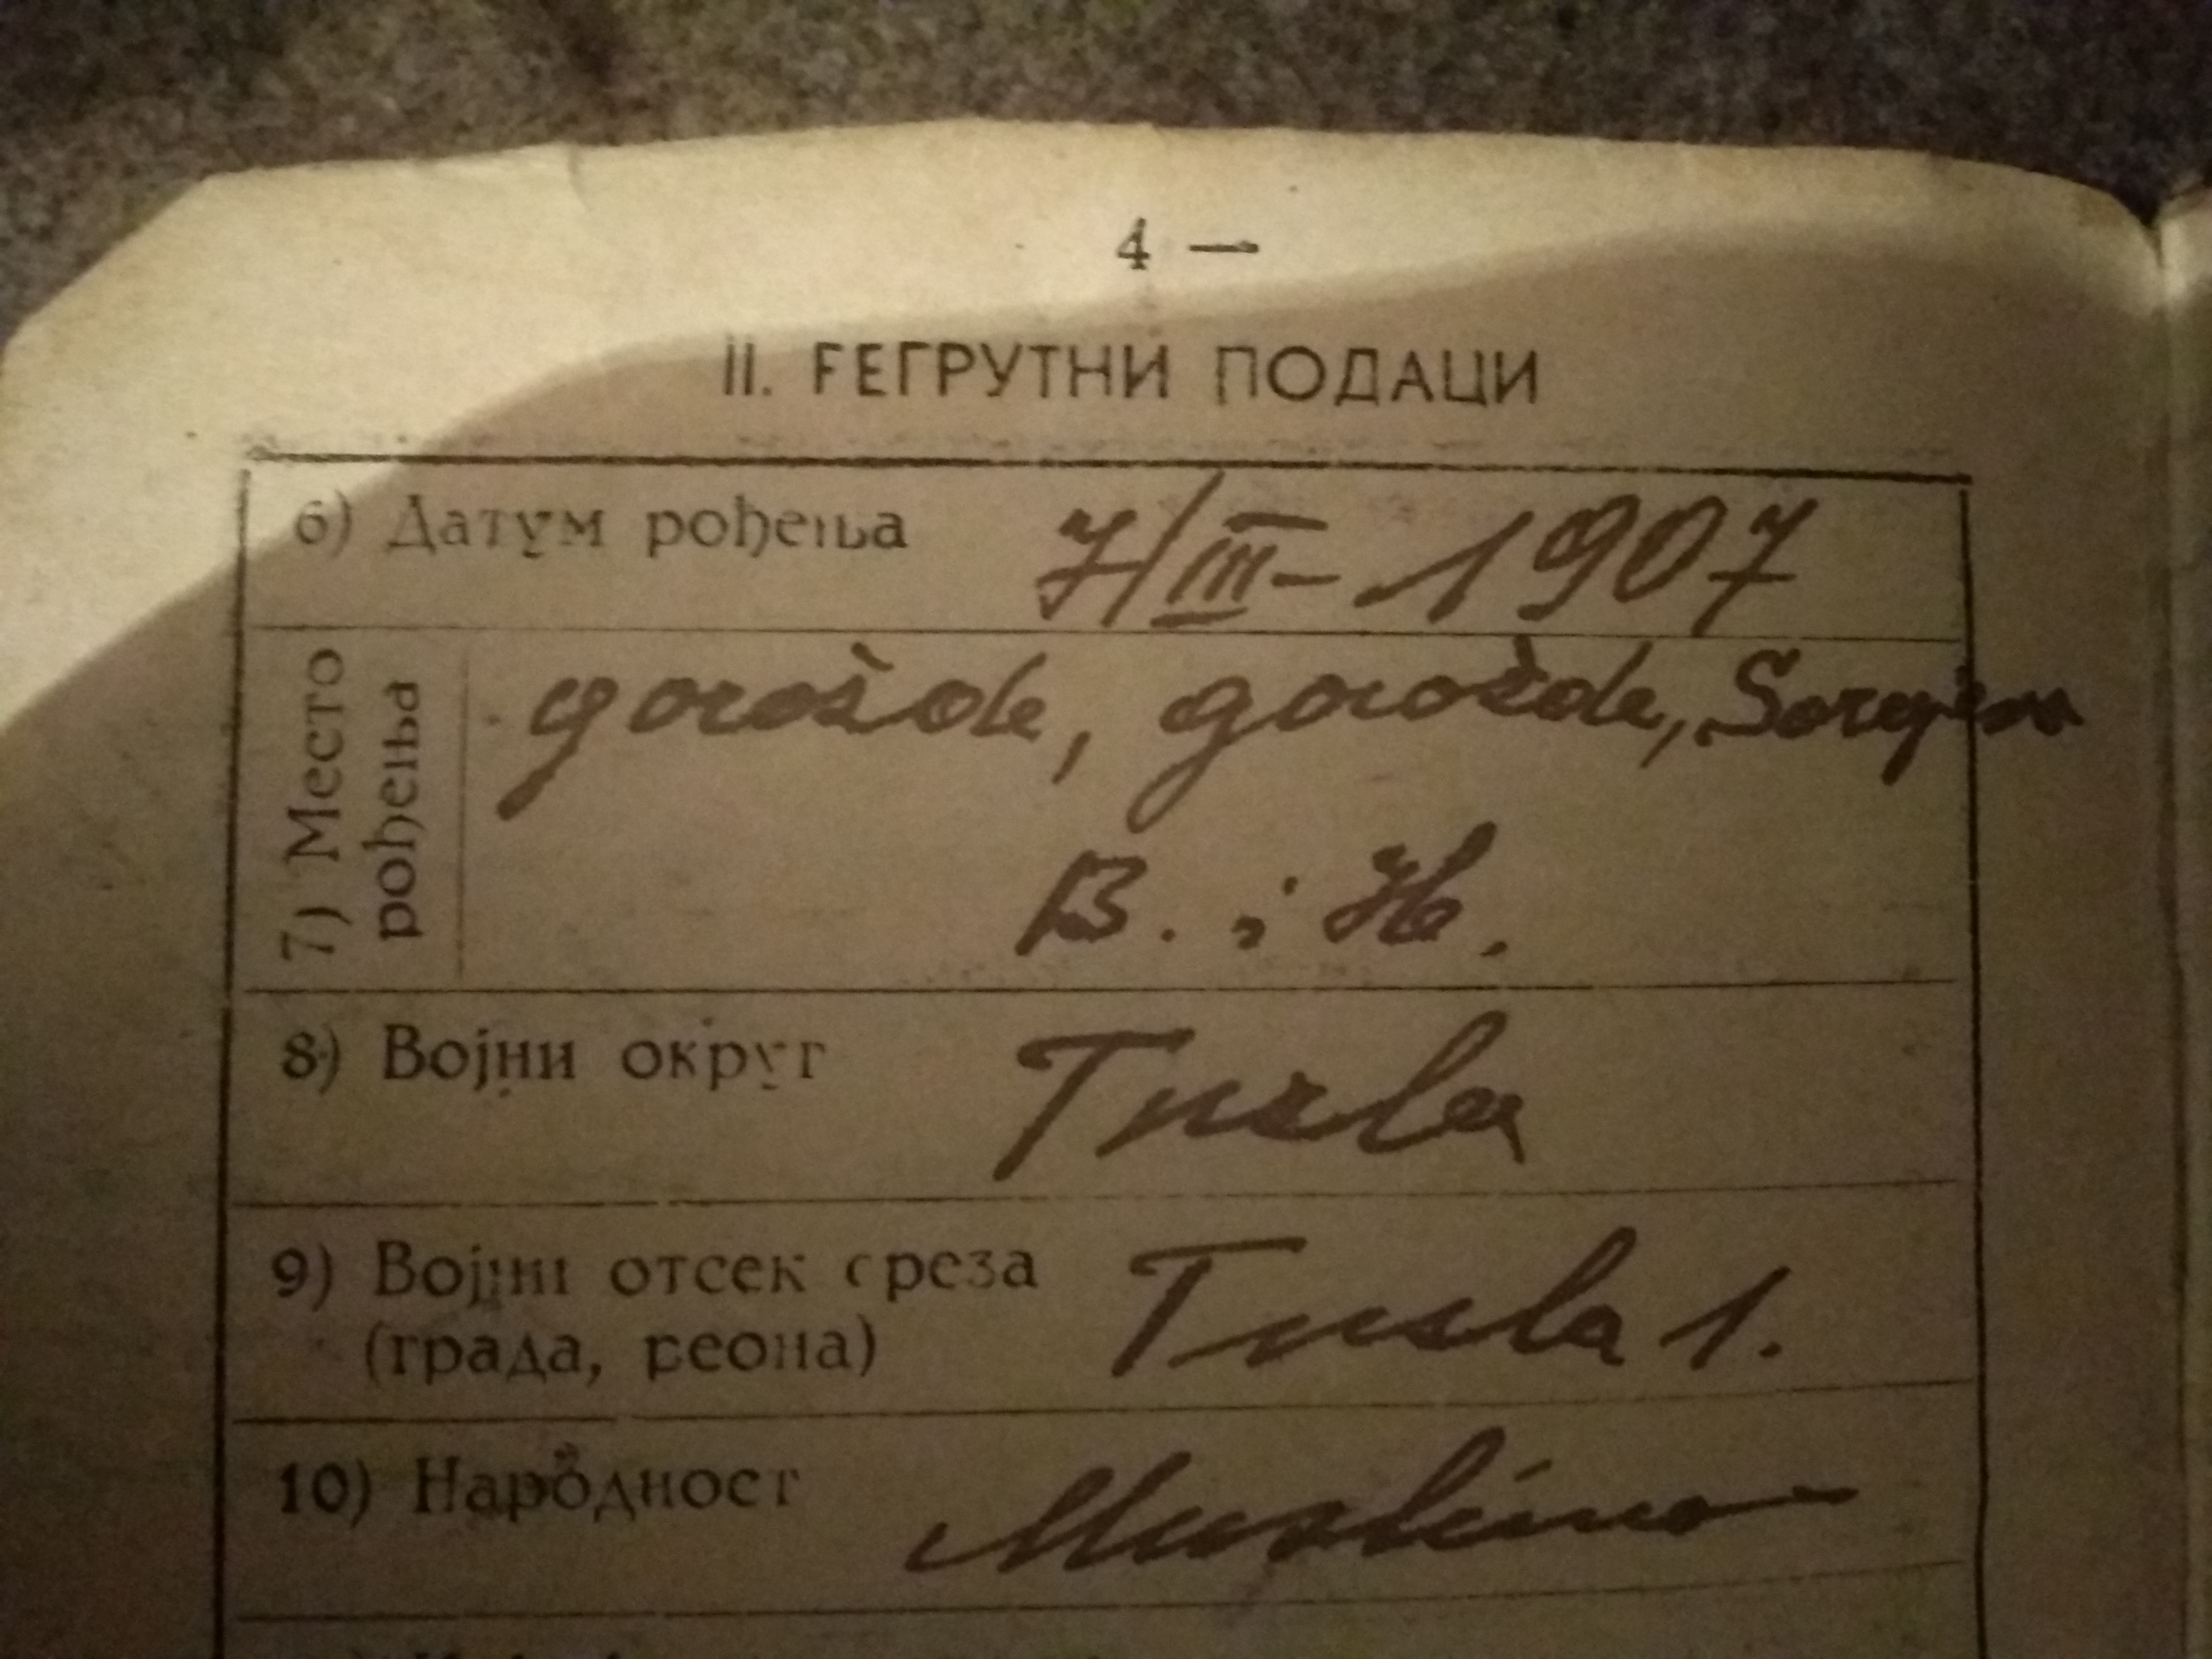 4 —
II. РЕГРУТНИ ПОДАЦИ
6) Датум рођења 7/III - 1907
7) Место рођења Goražde, Goražde, Sarajevo
B. i H.
8) Војни округ Tuzla
9) Војни отсек среза Tuzla 1.
(града, реона)
10) Народност Musliman